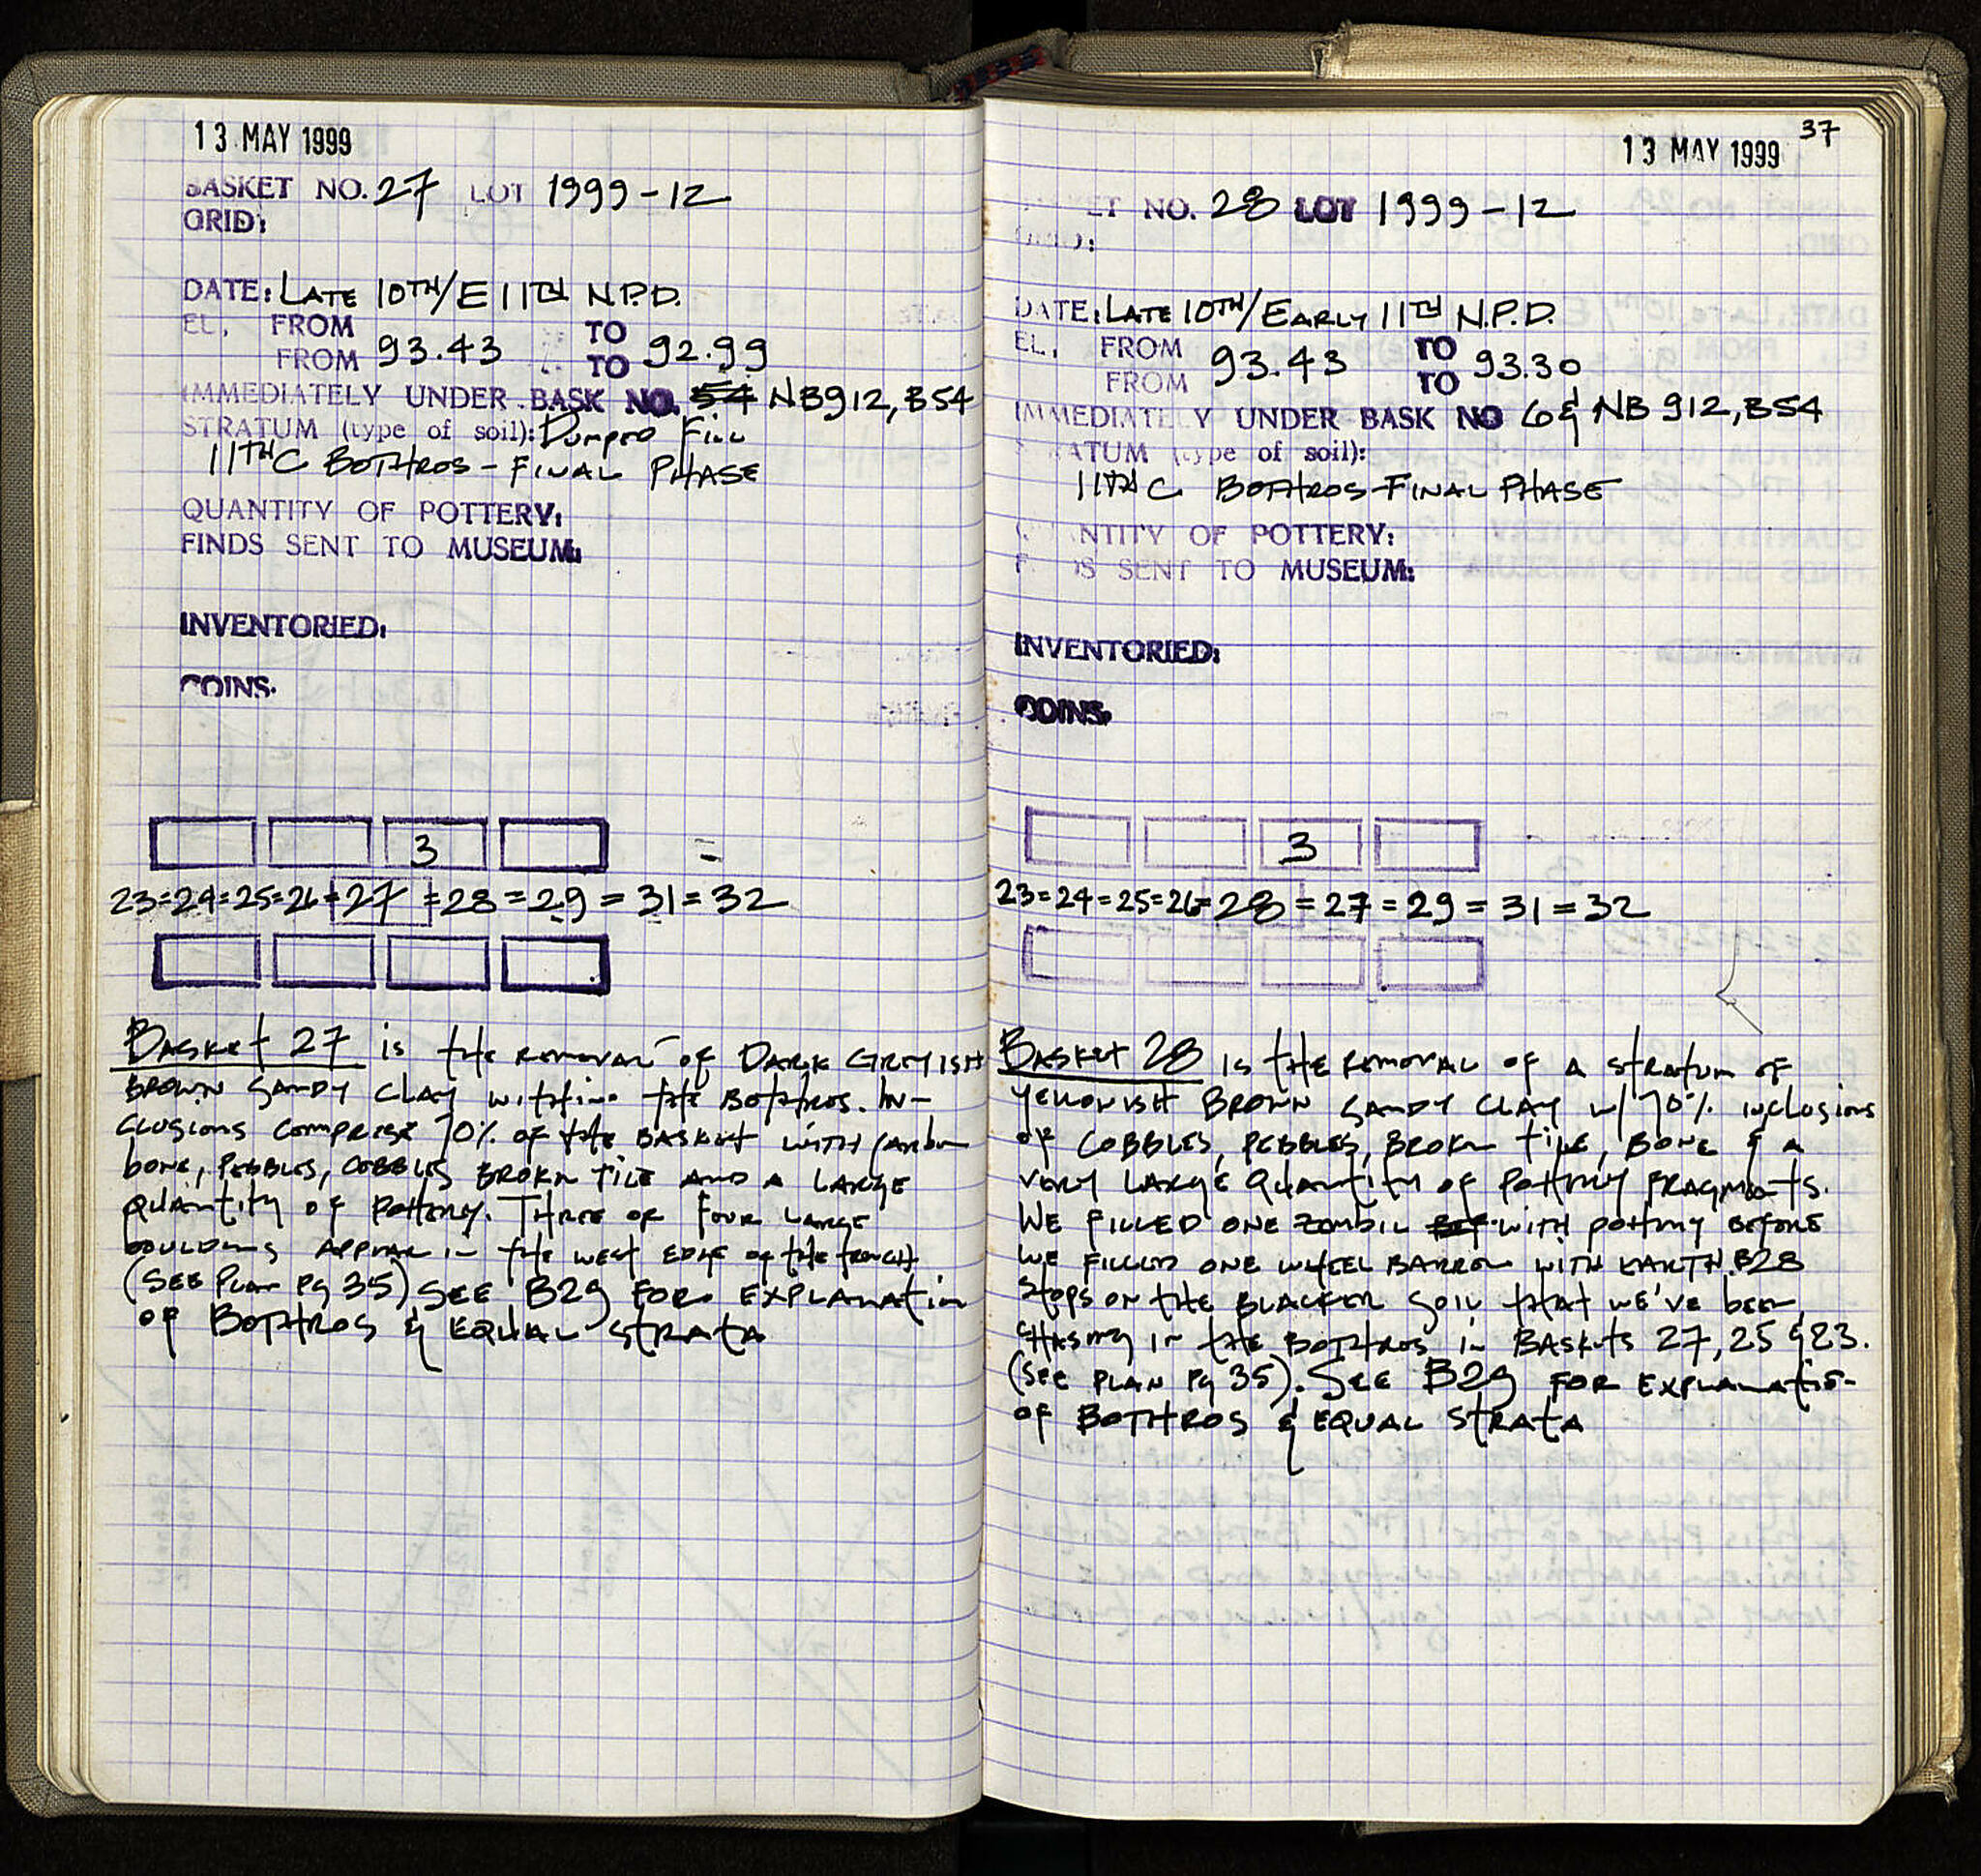 13 MAY 1999
BASKET NO. 27 LOT 1999-12
GRID:
DATE: LATE 10TH/E 11TH N.P.D.
EL. FROM TO
FROM 93.43 TO 92.99
IMMEDIATELY UNDER BASK NO. 54 NB912, B54
STRATUM (type of soil): DUMPED FILL
11TH C BOTHROS - FINAL PHASE
QUANTITY OF POTTERY:
FINDS SENT TO MUSEUM:
INVENTORIED:
COINS.
3
=
23=24=25=26=27=28=29=31=32
BASKET 27 is the REMOVAL OF DARK GREYISH
BROWN SANDY CLAY within the BOTHROS. IN-
CLUSIONS COMPRISE 70% OF the BASKET WITH CARBON
bone, PEBBLES, COBBLES BROKEN TILE AND A LARGE
QUANTITY OF POTTERY. THREE OR FOUR LARGE
BOULDERS APPEAR IN the WEST EDGE OF the TRENCH
(SEE PLAN pg 35) SEE B29 FOR EXPLANATION
OF BOTHROS & EQUAL STRATA
37
13 MAY 1999
ET NO. 28 LOT 1999-12
DATE: LATE 10TH/EARLY 11TH N.P.D.
EL. FROM TO
FROM 93.43 TO 93.30
IMMEDIATELY UNDER BASK NO 6 & NB 912, B54
ATUM (type of soil):
11TH C BOTHROS-FINAL PHASE
NTITY OF POTTERY:
F DS SENT TO MUSEUM:
INVENTORIED:
COINS.
3
23=24=25=26=28=27=29=31=32
BASKET 28 is the REMOVAL OF A STRATUM OF
YELLOWISH BROWN SANDY CLAY w/70% INCLUSIONS
OF COBBLES, PEBBLES, BROKEN TILE, BONE & A
VERY LARGE QUANTITY OF POTTERY FRAGMENTS.
WE FILLED ONE ZEMBIL WITH POTTERY BEFORE
WE FILLED ONE WHEEL BARROW WITH EARTH. B28
STOPS ON the BLACKER SOIL that WE'VE been
CHASING IN the BOTHROS in BASKETS 27, 25 & 23.
(SEE PLAN pg 35). SEE B29 FOR EXPLANATION
OF BOTHROS & EQUAL STRATA